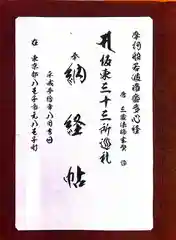 摩訶般若波羅蜜多心経
唐 三蔵法師玄奘 作
坂東三十三所巡礼
奉 納経帖
平成 年 八月吉日
在 東京都八王子市元八王子町